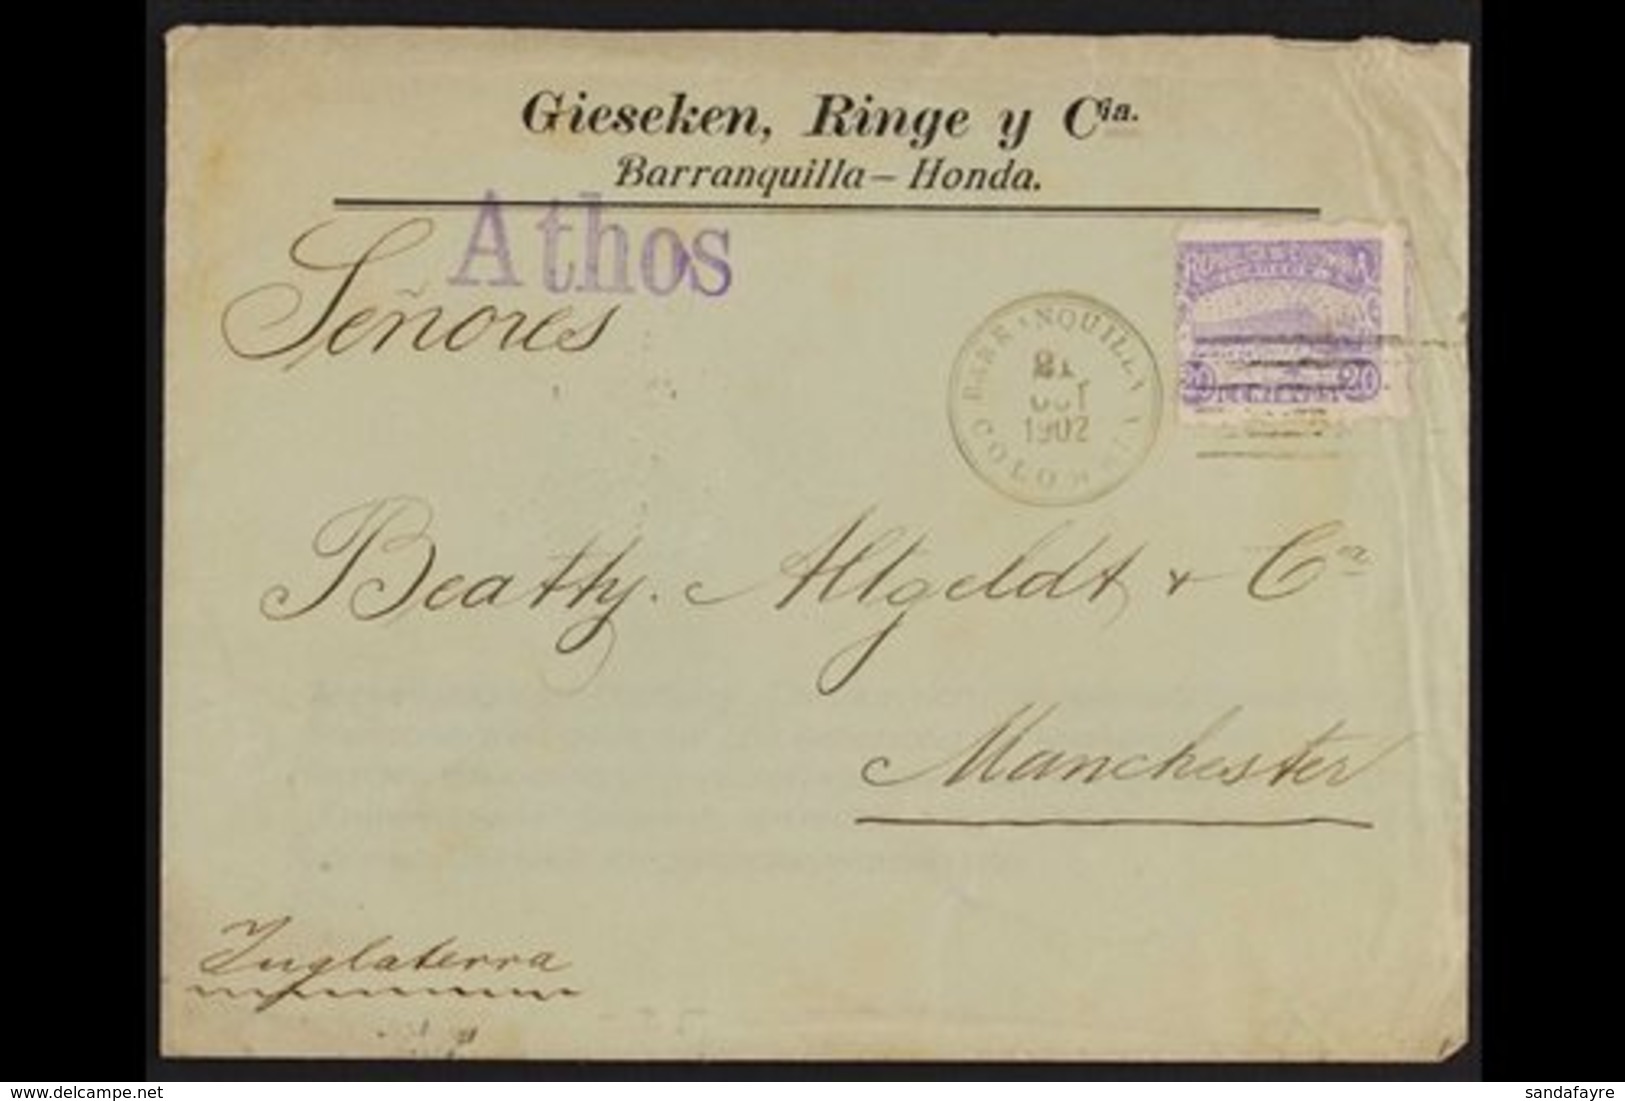 Gieseken, Ringe y Cia.
Barranquilla – Honda.
Athos
Señores
BARRANQUILLA
21
OCT
1902
COLOMBIA
20 20
Beatty. Altgeldt & Ca
Manchester
Inglaterra
sandafayre